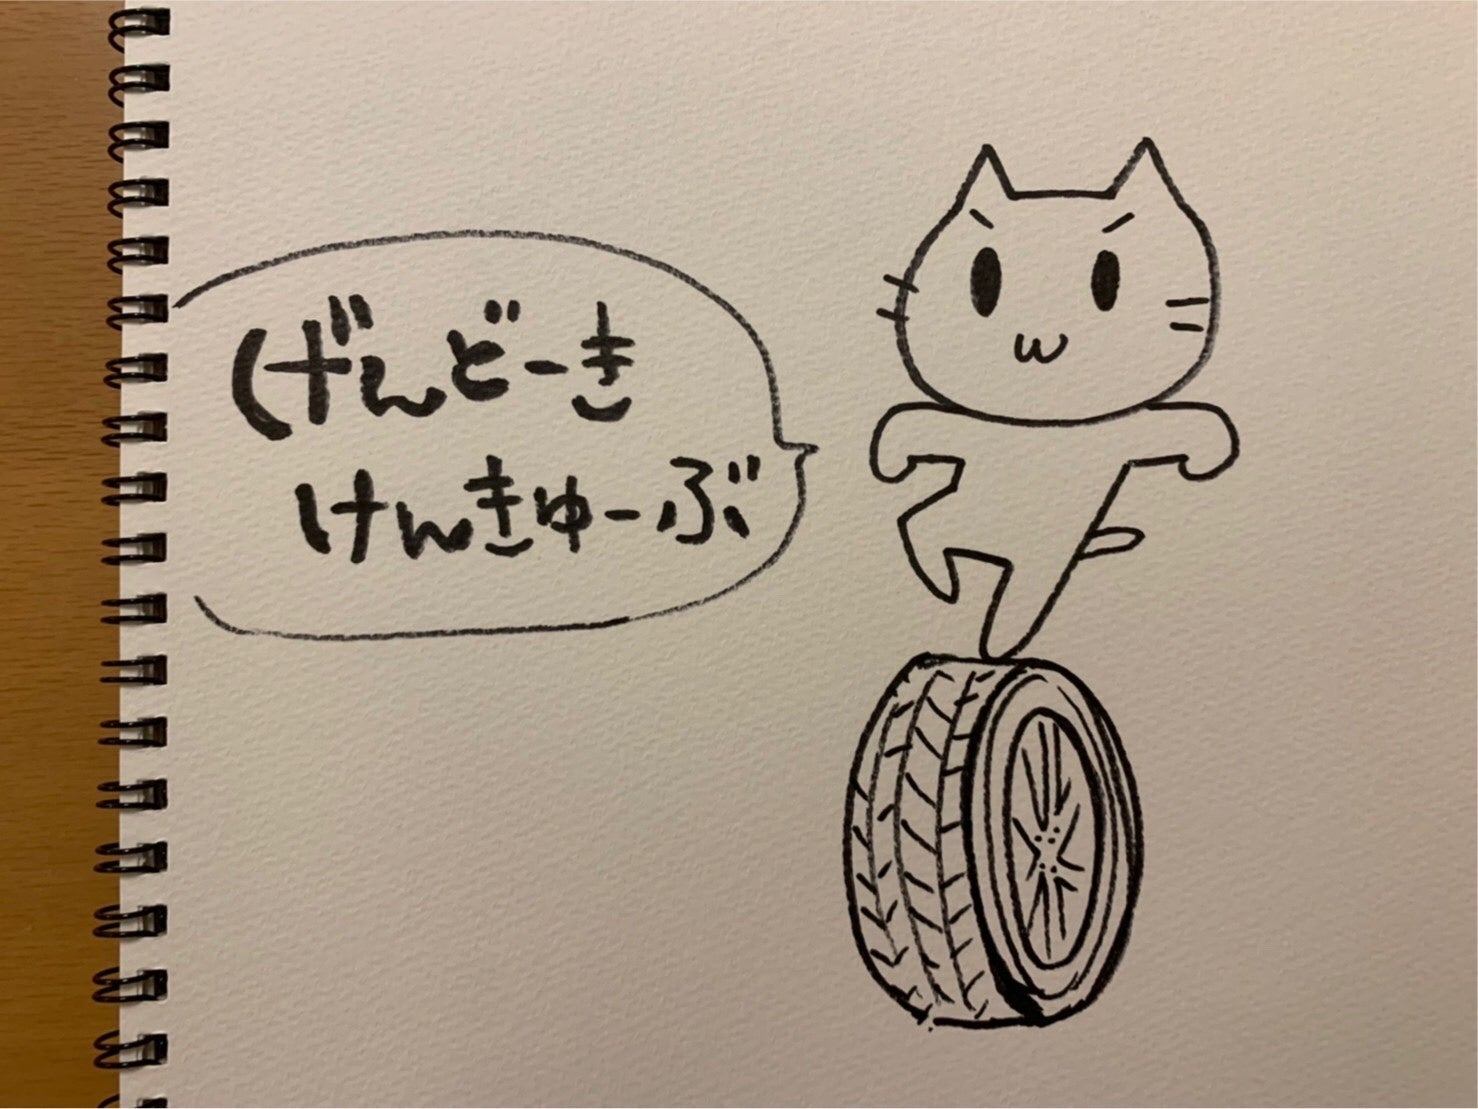 げんどーき
けんきゅーぶ